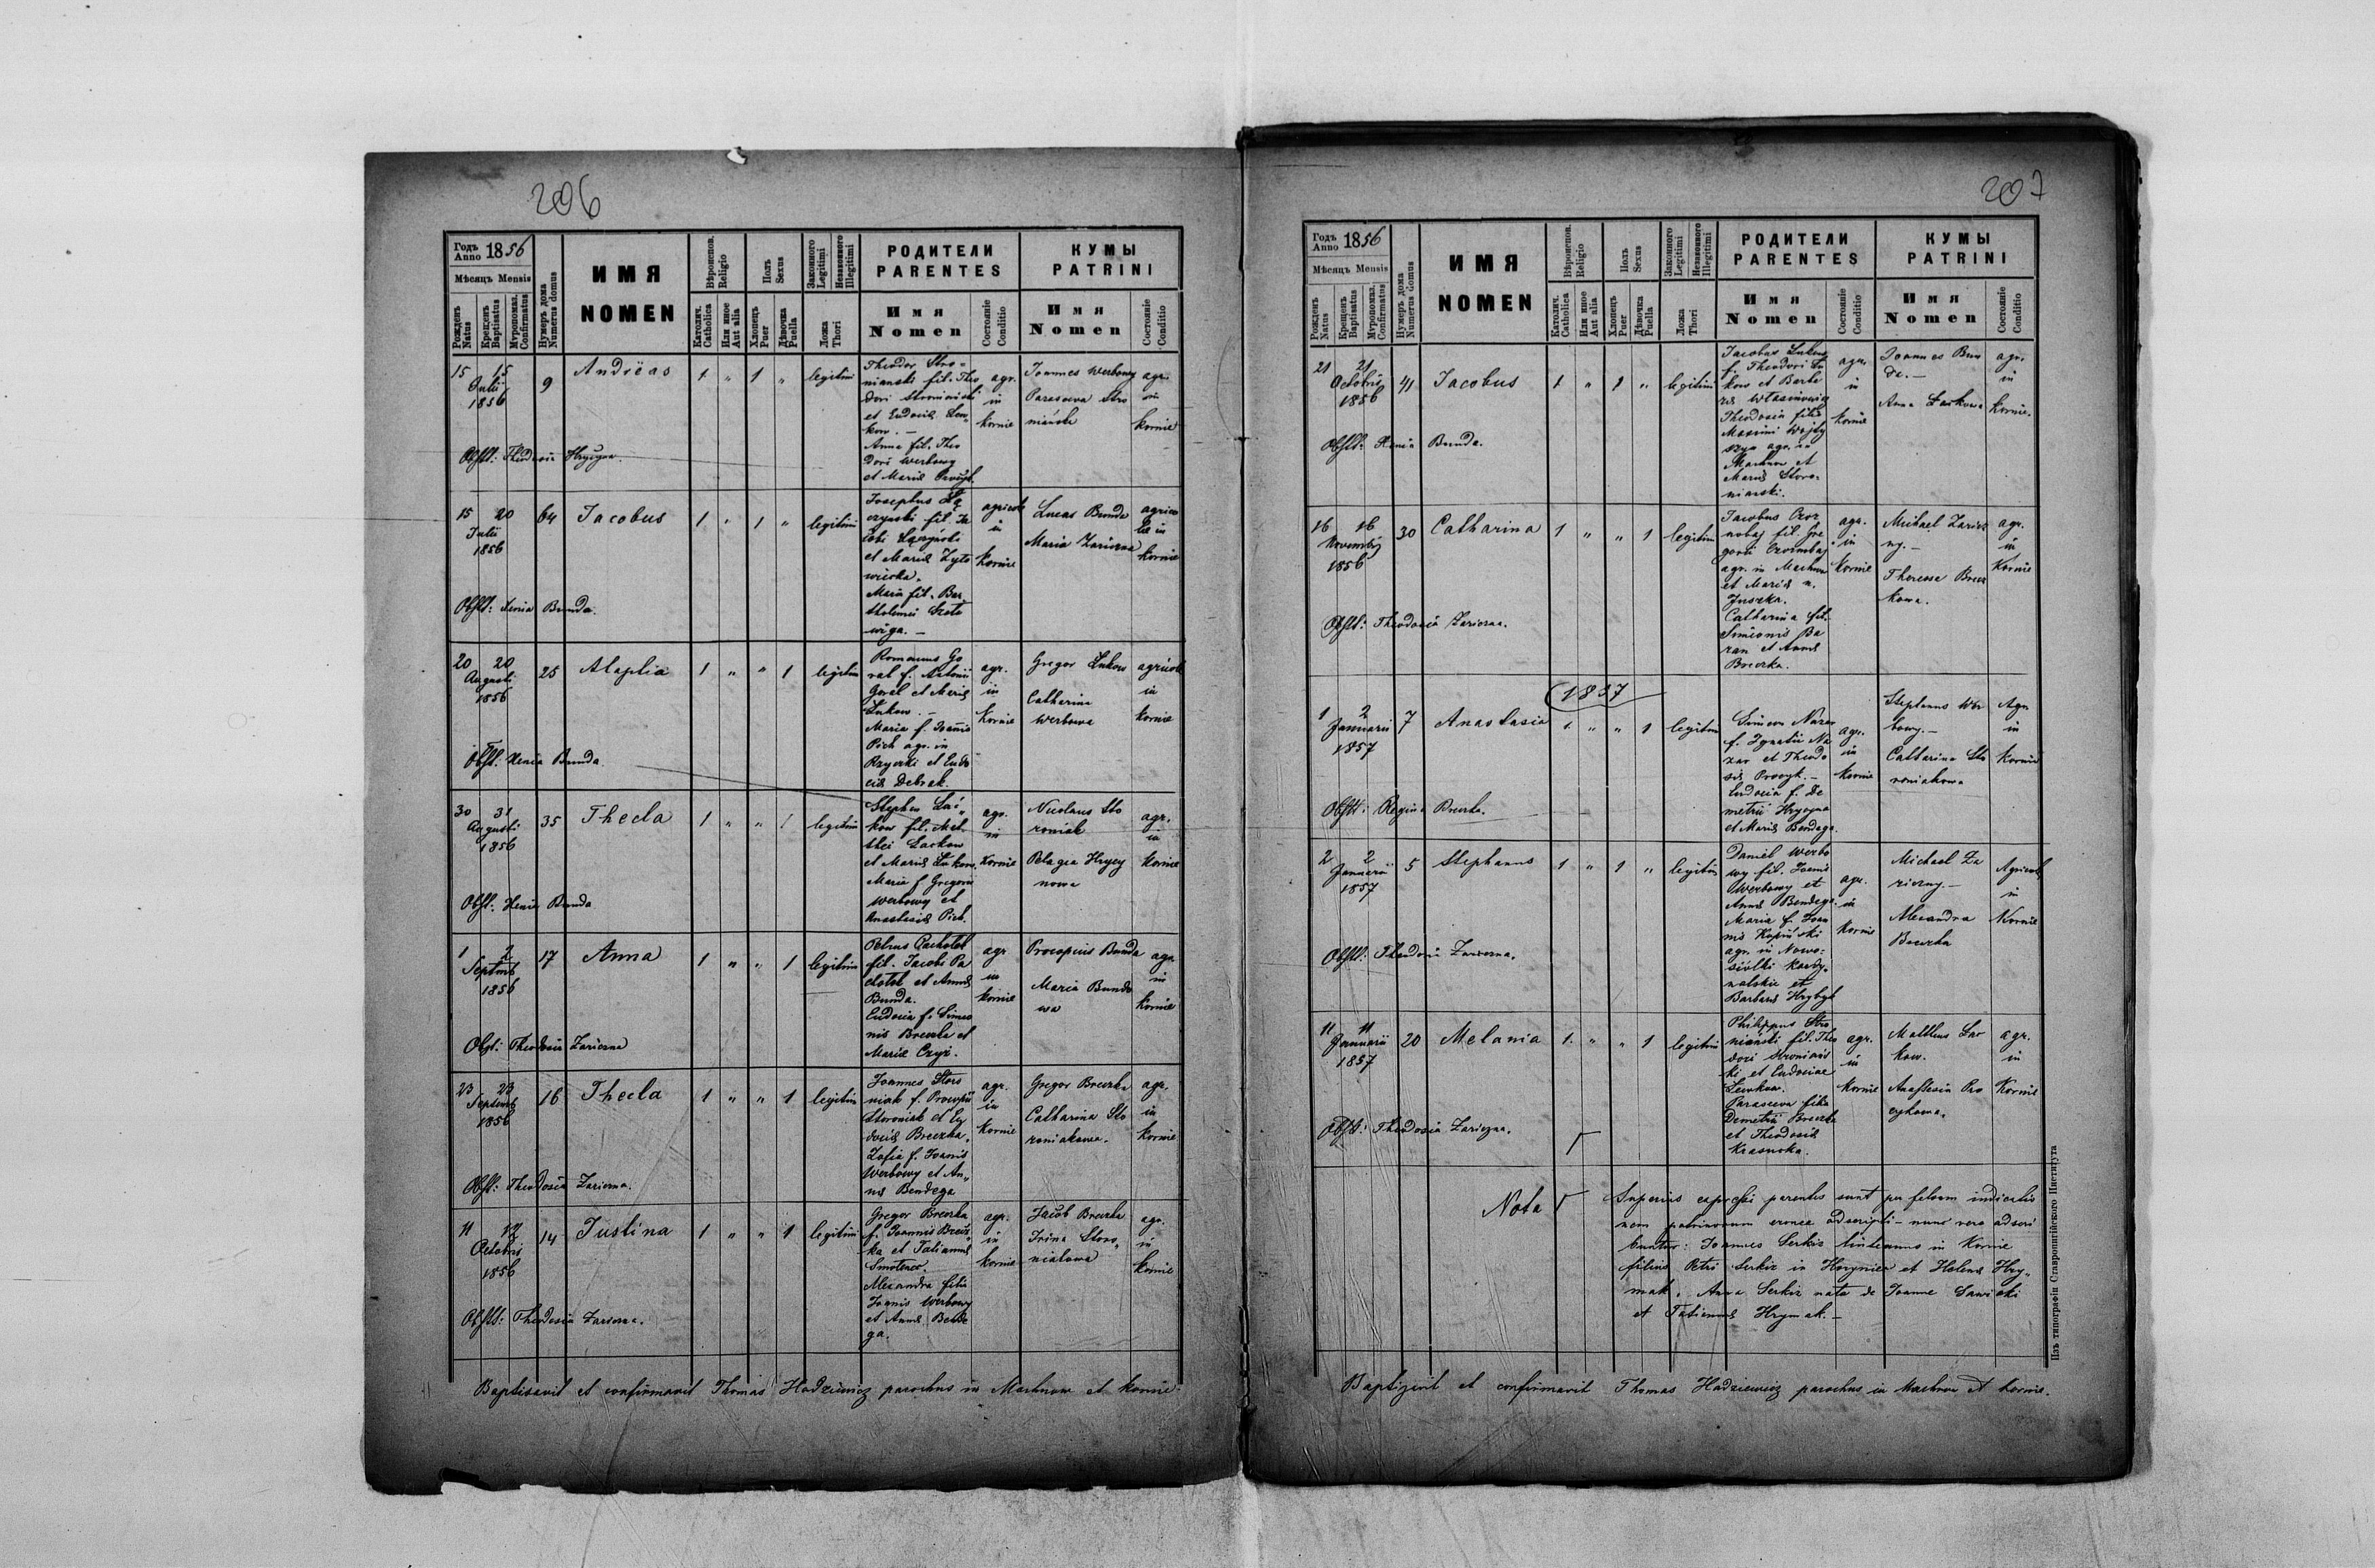 206
Годъ Anno 1856
Мѣсяцъ Mensis
Рожденъ Natus
Крещенъ Baptisatus
Муропомаз. Confirmatus
Нумеръ дома Numerus domus
ИМЯ NOMEN
Вѣроисповѣд. Religio
Католич. Catholica
Или иное Aut alia
Полъ Sexus
Хлопецъ Puer
Дѣвочка Puella
Законного Legitimi
Незаконного Illegitimi
Ложа Thori
РОДИТЕЛИ PARENTES
Имя Nomen
Состояніе Conditio
КУМЫ PATRINI
Имя Nomen
Состояніе Conditio
15 15 Julii 1856
9
Andreas
1 " 1 "
legitimi
Theodor Stro=
nianski fil. Theo
dori Stronianski
et Eudociæ Lew
kow. –
Anna fil. Theo
dori Werbowy
et Mariæ
agr. in Kornie
Joannes Werbowy
Parasceva Stro
niańska
agr. in Kornie
Obst: Theodosia Hrycyna.
15 20 Julii 1856
64
Jacobus
1 " 1 "
legitimi
Josephus Łą
czynski fil. Ja
cobi Łączyński
et Mariæ Zyto
wiecka.
Maria fil. Bar
tholomei Szato
wiga. –
agricola in Kornie
Lucas Bunda
Maria Zarična
agricola in Kornie
Obst: Xenia Bunda.
20 20 Augusti 1856
25
Ataphia
1 " " 1
legitimi
Romanus Go
ral f. Antonii
Goral et Mariæ
Lukow. –
Maria f. Joannis
Pich agr. in
Rzyczki et Eudo
ciæ Debrak.
agr. in Kornie
Gregor Lukow
Catharina
Werbowa
agricola in Kornie
Obst: Xenia Bunda
30 31 Augusti 1856
35
Thecla
1 " " 1
legitimi
Stephan Lać
kow fil. Mat
thei Lackow
et Mariæ Lukow.
Maria f Gregorii
Werbowy et
Anastasiæ Pich.
agr. in Kornie
Nicolaus Sto
roniak
Pelagia Hrycy
nowa
agr. in Kornie
Obst: Xenia Bunda
1 2 Septemb 1856
17
Anna
1 " " 1
legitimi
Petrus Pachotek
fil. Jacobi Pa
chotek et Annæ
Bunda.
Eudocia f. Simeo
nis Breczka et
Mariæ Czyż.
agr in Kornie
Procopius Bunda
Maria Bundo
wa
agr. in Kornie
Obst: Theodosia Zariczna
23 23 Septemb 1856
16
Thecla
1 " " 1
legitimi
Joannes Storo
niak f. Procopii
Storoniak et Eu
dociæ Breczka.
Zofia f. Joannis
Werbowy et An„
næ Bendega
agr. in Kornie
Gregor Breczka
Catharina Sto
roniakowa.
agr. in Kornie
Obst: Theodosia Zariczna.
11 12 Octobris 1856
14
Justina
1 " " 1
legitimi
Gregor Breczka
f. Joannis Brecz„
ka et Tatiannæ
Smotrecz.
Alexandra filia
Joannis Werbowy
et Annæ Bende
ga.
agr. in Kornie
Jacob Breczka
Irina Storo„
niakowa
agr. in Kornie
Obst: Theodosia Zariczna.
Baptisavit et confirmavit Thomas Hodziewicz parochus in Machnow et Kornie.
207
Годъ Anno 1856
Мѣсяцъ Mensis
Рожденъ Natus
Крещенъ Baptisatus
Муропомаз. Confirmatus
Нумеръ дома Numerus domus
ИМЯ NOMEN
Вѣроисповѣд. Religio
Католич. Catholica
Или иное Aut alia
Полъ Sexus
Хлопецъ Puer
Дѣвочка Puella
Законного Legitimi
Незаконного Illegitimi
Ложа Thori
РОДИТЕЛИ PARENTES
Имя Nomen
Состояніе Conditio
КУМЫ PATRINI
Имя Nomen
Состояніе Conditio
21 21 Octobris 1856
41
Jacobus
1 " 1 "
legitimi
Jacobus Lukow
f. Theodori Lu
kow et Barba
ræ Własinowicz
Theodosia filia
Maximi Wojty
szyn agr. in
Machnow et
Mariæ Storo=
nianski.
agr. in Kornie
Joannes Bun
da. –
Anna Laćkowa
agr. in Kornie.
Obst: Xenia Bunda.
16 16 Novembris 1856
30
Catharina
1 " " 1
legitimi
Jacobus Czor
nobaj fil. Gre
gorii Czornobaj
agr. in Machnow
et Mariæ n.
Juszka.
Catharina fil.
Simeonis Ba
ran et Annæ
Breczka.
agr. in Kornie
Michael Zaricz
ny. –
Theresia Brecz
kowa.
agr. in Kornie
Obst: Theodosia Zariczna.
1857
1 2 Januarii 1857
7
Anastasia
1 " " 1
legitimi
Simeon Nazar
f. Ignatii Na
zar et Theodo
siæ Procyk. –
Eudocia f. De
metrii Hrycyna
et Mariæ Bendega.
agr. in Kornie
Stephanus Wer
bowy. –
Catharina Sto
roniakowa
Agr. in Kornie
Obst: Regina Breczka.
2 2 Januarii 1857
5
Stephanus
1 " 1 "
legitimi
Daniel Werbo
wy fil. Joannis
Werbowy et
Annæ Bendega.
Maria f. Joan
nis Kopiński
agr. in Nowo=
siółki Kardy
nalskie et
Barbaræ Hrybyk
agr. in Kornie
Michael Za
riczny. –
Alexandra
Breczka
Agricola in Kornie
Obst: Theodosia Zariczna.
11 11 Januarii 1857
20
Melania
1. " " 1
legitimi
Philippus Stro
niański fil. Theo
dori Stroniańs
ki et Eudociæ
Lewkow.
Parasceva filia
Demetrii Breczka
et Theodosiæ
Krasnoka.
agr. in Kornie
Mattheus Lac
kow.
Anastasia Pro
cykowa.
agr. in Kornie
Obst: Theodosia Zariczna.
Nota
Superius expressi parentes sunt per falsam indicatio
nem patrinorum eronea adscripti – nunc vero adscri
buntur: Joannes Serkiz linteamus in Kornie
filius Petri Serkiz in Horyniec et Helenæ Hry„
mak. Anna Serkiz nata de Joanne Sawicki
et Tatiannæ Hrymak. –
Baptizavit et confirmavit Thomas Hodziewicz parochus in Machnow et Kornie.
Изъ типографіи Ставропигійского Института